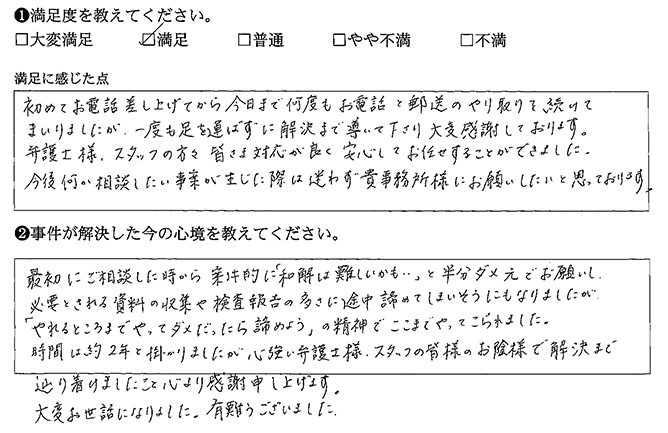 ❶満足度を教えてください。
□大変満足 ☑満足 □普通 □やや不満 □不満
満足に感じた点
初めてお電話差し上げてから今日まで何度もお電話と郵送のやり取りを続けて
まいりましたが、一度も足を運ばずに解決まで導いて下さり大変感謝しております。
弁護士様、スタッフの方々皆さま対応が良く安心してお任せすることができました。
今後何か相談したい事案が生じた際は迷わず貴事務所様にお願いしたいと思っております。
❷事件が解決した今の心境を教えてください。
最初にご相談した時から案件的に「和解は難しいかも‥」と半分ダメ元でお願いし、
必要とされる資料の収集や検査報告の多さに途中諦めてしまいそうにもなりましたが、
「やれるところまでやってダメだったら諦めよう」の精神でここまでやってこられました。
時間は約2年と掛かりましたが心強い弁護士様、スタッフの皆様のお陰様で解決まで
辿り着けましたこと心より感謝申し上げます。
大変お世話になりました。有難うございました。